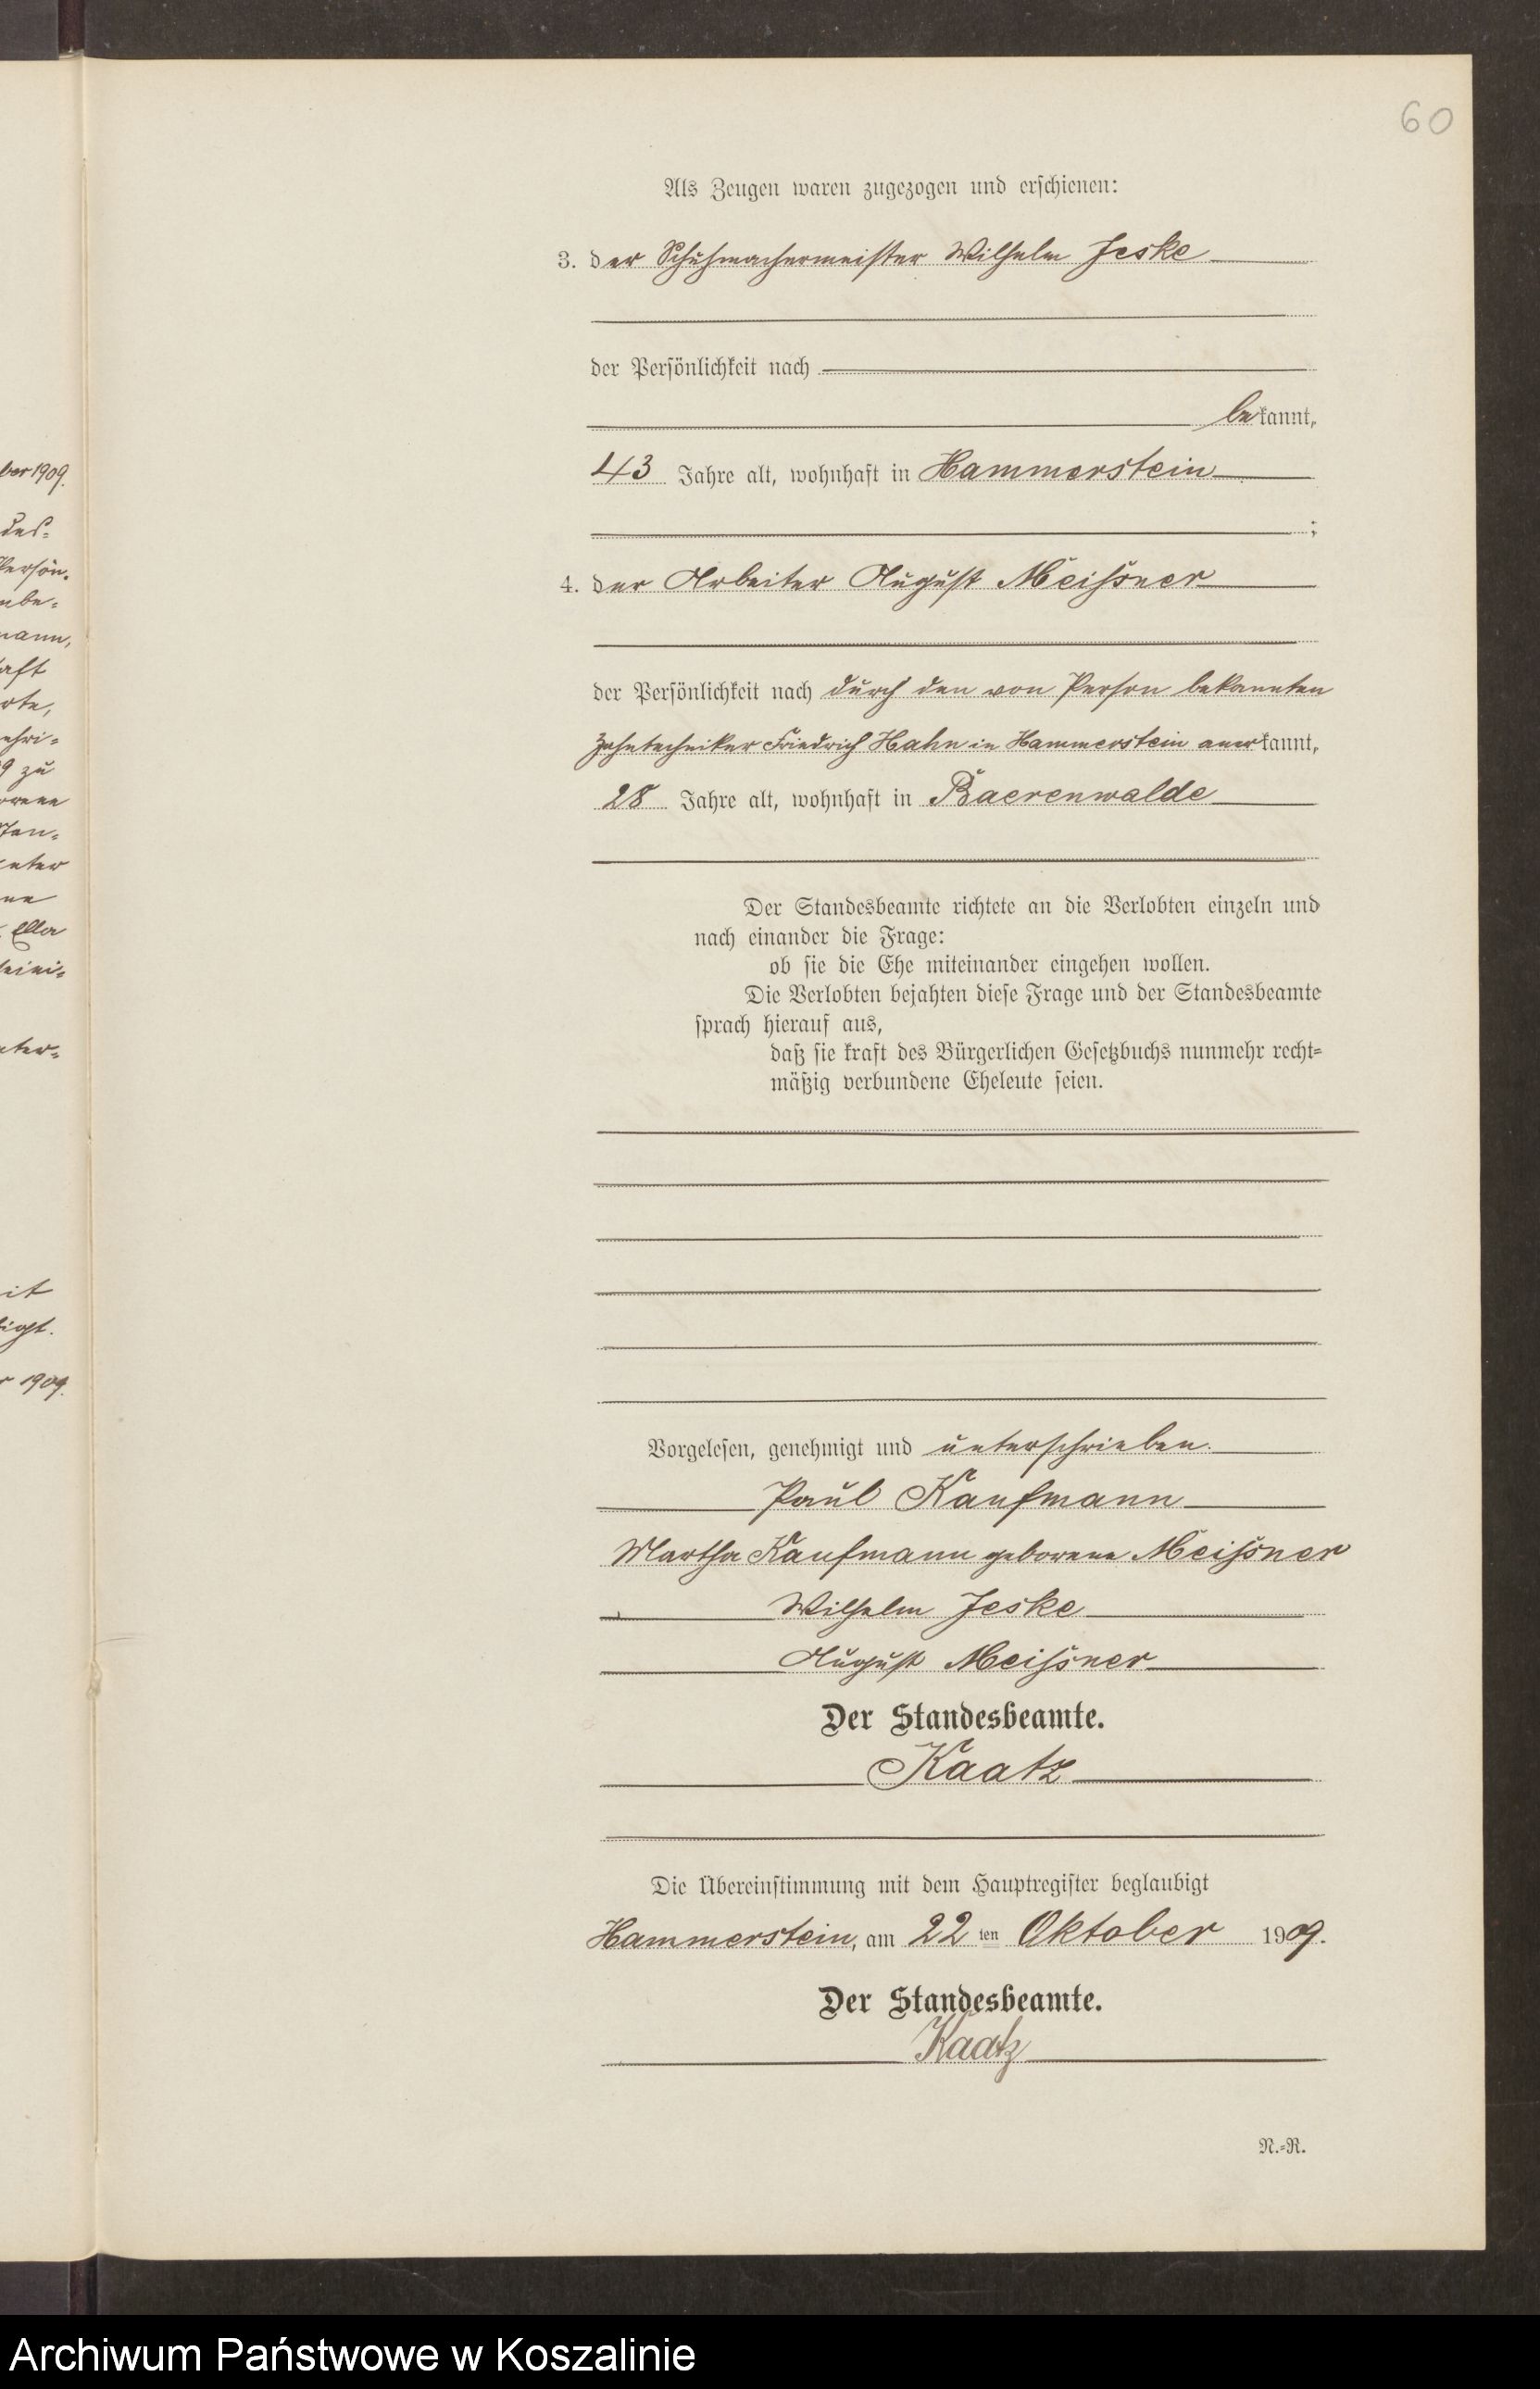 60
Als Zeugen waren zugezogen und erschienen:
3. der Schuhmachermeister Wilhelm Jeske
der Persönlichkeit nach
bekannt,
43 Jahre alt, wohnhaft in Hammerstein
;
4. der Arbeiter August Meißner
der Persönlichkeit nach durch den von Person bekannten
Zahntechniker Friedrich Hahn in Hammerstein anerkannt,
28 Jahre alt, wohnhaft in Baerenwalde
Der Standesbeamte richtete an die Verlobten einzeln und
nach einander die Frage:
ob sie die Ehe miteinander eingehen wollen.
Die Verlobten bejahten diese Frage und der Standesbeamte
sprach hierauf aus,
daß sie kraft des Bürgerlichen Gesetzbuchs nunmehr recht=
mäßig verbundene Eheleute seien.
Vorgelesen, genehmigt und unterschrieben.
Paul Kaufmann
Martha Kaufmann geborene Meißner
Wilhelm Jeske
August Meißner
Der Standesbeamte.
Kaatz
Die Übereinstimmung mit dem Hauptregister beglaubigt
Hammerstein, am 22 ten Oktober 1909.
Der Standesbeamte.
Kaatz
N.=R.
ber 1909.
des=
Persön=
mann,
aft
9 zu
Ella
it
r 1909.
Archiwum Państwowe w Koszalinie